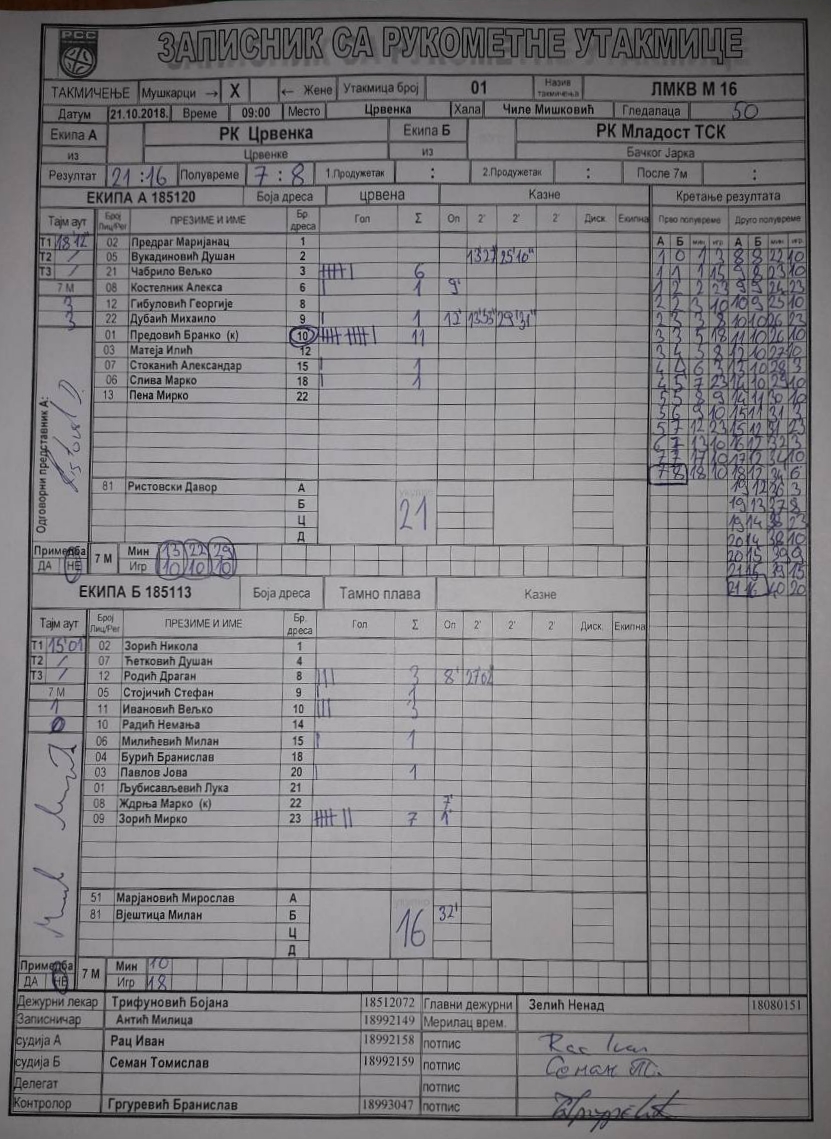 РСС
ЗАПИСНИК СА РУКОМЕТНЕ УТАКМИЦЕ
ТАКМИЧЕЊЕ Мушкарци → X ← Жене Утакмица број 01 Назив такмичења ЛМКВ М 16
Датум 21.10.2018. Време 09:00 Место Црвенка Хала Чиле Мишковић Гледалаца 50
Екипа А РК Црвенка Екипа Б РК Младост ТСК
из Црвенке из Бачког Јарка
Резултат 21:16 Полувреме 7:8 1.Продужетак : 2.Продужетак : После 7м :
ЕКИПА А 185120 Боја дреса црвена Казне Кретање резултата
Тајм аут Број Лиц/Рег ПРЕЗИМЕ И ИМЕ Бр. дреса Гол Σ Оп 2' 2' 2' Диск. Екипна Прво полувреме Друго полувреме
А Б мин игр А Б мин игр
Т1 18'12" 02 Предраг Маријанац 1
Т2 / 05 Вукадиновић Душан 2 13'27" 25'10" 1 0 1 3 8 8 22 10
Т3 / 21 Чабрило Вељко 3 6 1 1 1 15 9 8 23 10
7 М 08 Костелник Алекса 6 1 9' 1 2 2 23 9 9 24 23
3 12 Гибуловић Георгије 8 2 2 3 10 10 9 25 10
3 22 Дубаић Михаило 9 1 2 3 3 8 10 10 26 23
01 Предовић Бранко (к) 10 11 3 3 5 18 11 10 26 10
03 Матеја Илић 12 3 4 5 8 12 10 27 10
07 Стоканић Александар 15 1 4 4 6 3 13 10 28 3
06 Слива Марко 18 1 4 5 7 23 14 10 29 10
13 Пена Мирко 22 5 5 8 9 14 11 30 10
5 6 9 10 15 11 31 3
5 7 12 23 15 12 31 23
6 7 13 10 16 12 32 3
7 7 17 10 17 12 34 10
7 8 18 10 18 12 34 6
Одговорни представник А:
81 Ристовски Давор А 21 19 12 36 3
Б 19 13 37 8
Ц 19 14 38 23
Д 20 14 38 10
Примедба 7 М Мин 13 22 29 20 15 39 9
ДА НЕ Игр 10 10 10 21 15 39 15
21 16 40 20
ЕКИПА Б 185113 Боја дреса Тамно плава Казне
Тајм аут Број Лиц/Рег ПРЕЗИМЕ И ИМЕ Бр. дреса Гол Σ Оп 2' 2' 2' Диск. Екипна
Т1 15'01 02 Зорић Никола 1
Т2 / 07 Ћетковић Душан 4
Т3 / 12 Родић Драган 8 3 8' 27'02"
7 М 05 Стојичић Стефан 9 1
1 11 Ивановић Вељко 10 3
0 10 Радић Немања 14
06 Милићевић Милан 15 1
04 Бурић Бранислав 18
03 Павлов Јова 20 1
01 Љубисављевић Лука 21
08 Ждрња Марко (к) 22 7'
09 Зорић Мирко 23 7 1'
51 Марјановић Мирослав А 16
81 Вјештица Милан Б 32'
Ц
Д
Примедба 7 М Мин 10
ДА НЕ Игр 18
Дежурни лекар Трифуновић Бојана 18512072 Главни дежурни Зелић Ненад 18080151
Записничар Антић Милица 18992149 Мерилац врем.
судија А Рац Иван 18992158 потпис Rac Ivan
судија Б Семан Томислав 18992159 потпис Семан Т.
Делегат потпис
Контролор Гргуревић Бранислав 18993047 потпис